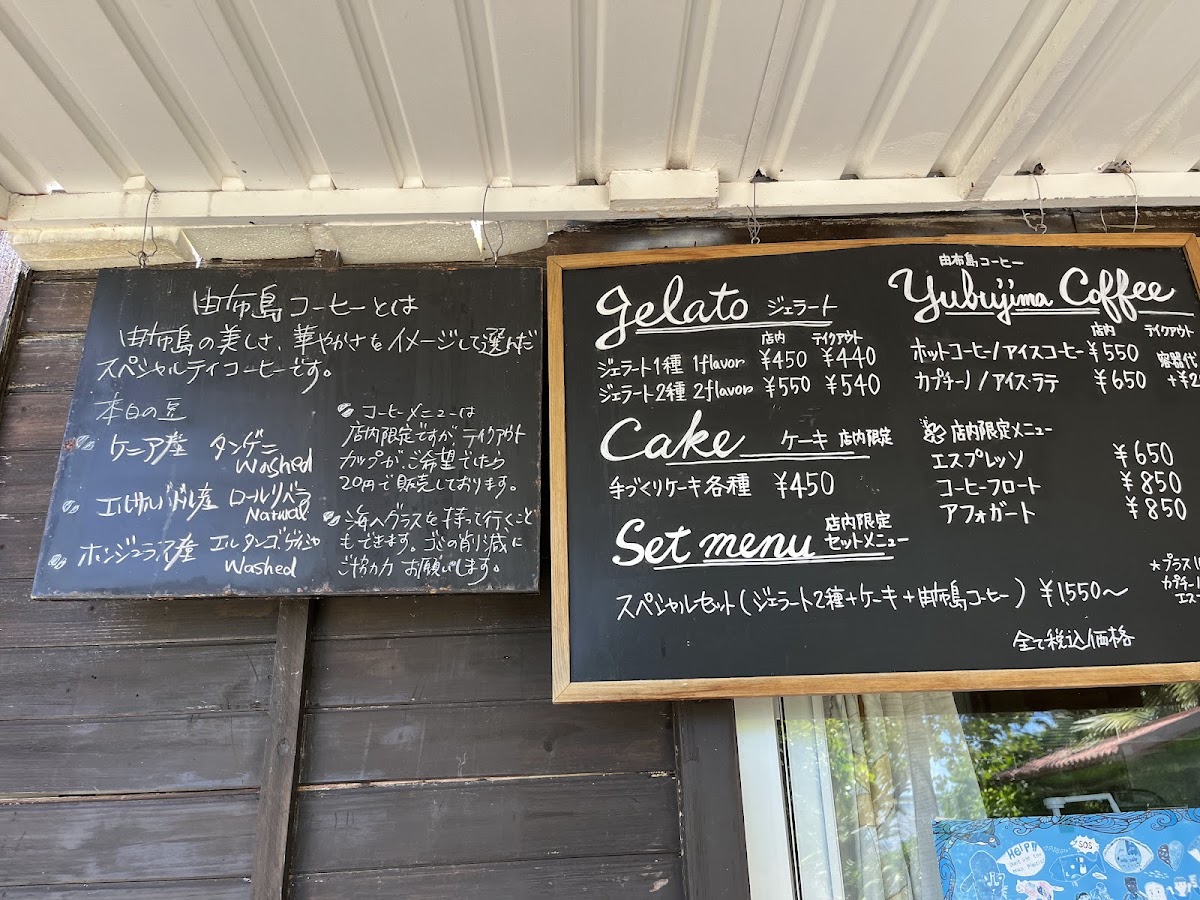 由布島コーヒーとは
由布島の美しさ、華やかさをイメージして選んだ
スペシャルティコーヒーです。
本日の豆
ケニア産 タンゲニ
Washed
エルサルバドル産 ロールリバラ
Natural
ホンジュラス産 エルタンゴ
Washed
コーヒーメニューは
店内限定ですが、テイクアウト
カップがご希望でしたら
20円で販売しております。
海へグラスを持って行くこと
もできます。ゴミの削減に
ご協力お願いします。
gelato ジェラート
店内 テイクアウト
ジェラート1種 1flavor ¥450 ¥440
ジェラート2種 2flavor ¥550 ¥540
Cake ケーキ 店内限定
手づくりケーキ各種 ¥450
Set menu 店内限定
セットメニュー
スペシャルセット(ジェラート2種+ケーキ+由布島コーヒー) ¥1,550〜
全て税込価格
由布島コーヒー
Yubujima Coffee
店内 テイクアウト
ホットコーヒー/アイスコーヒー ¥550 容器代
カプチーノ/アイスラテ ¥650 +¥2
店内限定メニュー
エスプレッソ ¥650
コーヒーフロート ¥850
アフォガート ¥850
★プラス1
カプチー
エスー
HELP!!
SOS